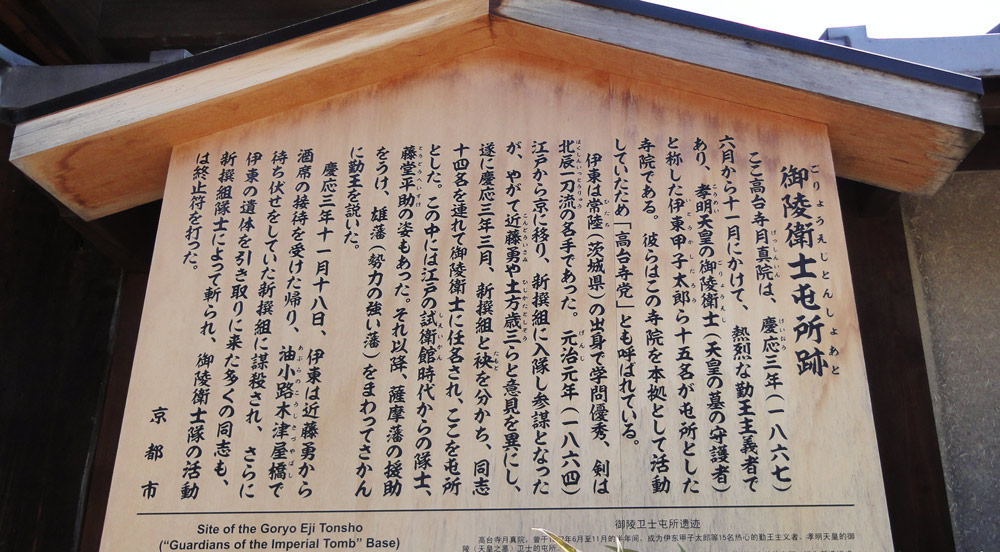 御陵衛士屯所跡
ごりょうえじとんしょあと
ここ高台寺月真院は、慶応三年(一八六七)
六月から十一月にかけて、熱烈な勤王主義者で
あり、孝明天皇の御陵衛士(天皇の墓の守護者)
と称した伊東甲子太郎ら十五名が屯所とした
寺院である。彼らはこの寺院を本拠として活動
していたため「高台寺党」とも呼ばれている。
伊東は常陸(茨城県)の出身で学問優秀、剣は
北辰一刀流の名手であった。元治元年(一八六四)
江戸から京に移り、新撰組に入隊し参謀となった
が、やがて近藤勇や土方歳三らと意見を異にし、
遂に慶応三年三月、新撰組と袂を分かち、同志
十四名を連れて御陵衛士に任名され、ここを屯所
とした。この中には江戸の試衛館時代からの隊士、
藤堂平助の姿もあった。それ以降、薩摩藩の援助
をうけ、雄藩(勢力の強い藩)をまわってさかん
に勤王を説いた。
慶応三年十一月十八日、伊東は近藤勇から
酒席の接待を受けた帰り、油小路木津屋橋で
待ち伏せをしていた新撰組に謀殺され、さらに
伊東の遺体を引き取りに来た多くの同志も、
新撰組隊士によって斬られ、御陵衛士隊の活動
は終止符を打った。
京都市
Site of the Goryo Eji Tonsho
("Guardians of the Imperial Tomb" Base)
御陵卫士屯所遗迹
高台寺月真院，曾于1867年6月至11月的半年间，成为伊东甲子太郎等15名热心的勤王主义者、孝明天皇的御
陵（天皇之墓）卫士的屯所